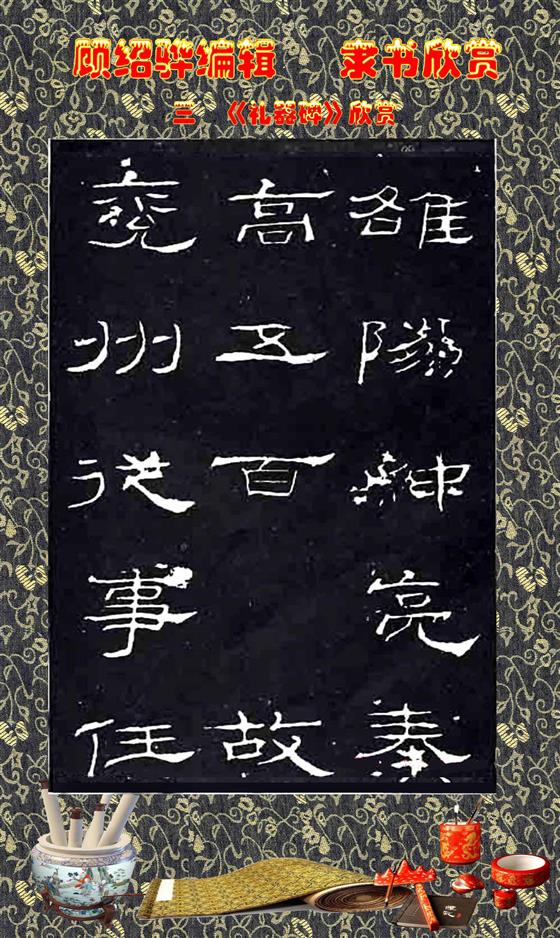 顾绍骅编辑 隶书欣赏
三 《礼器碑》欣赏
雒陽种亮奉
高五百 故
兖州従事任